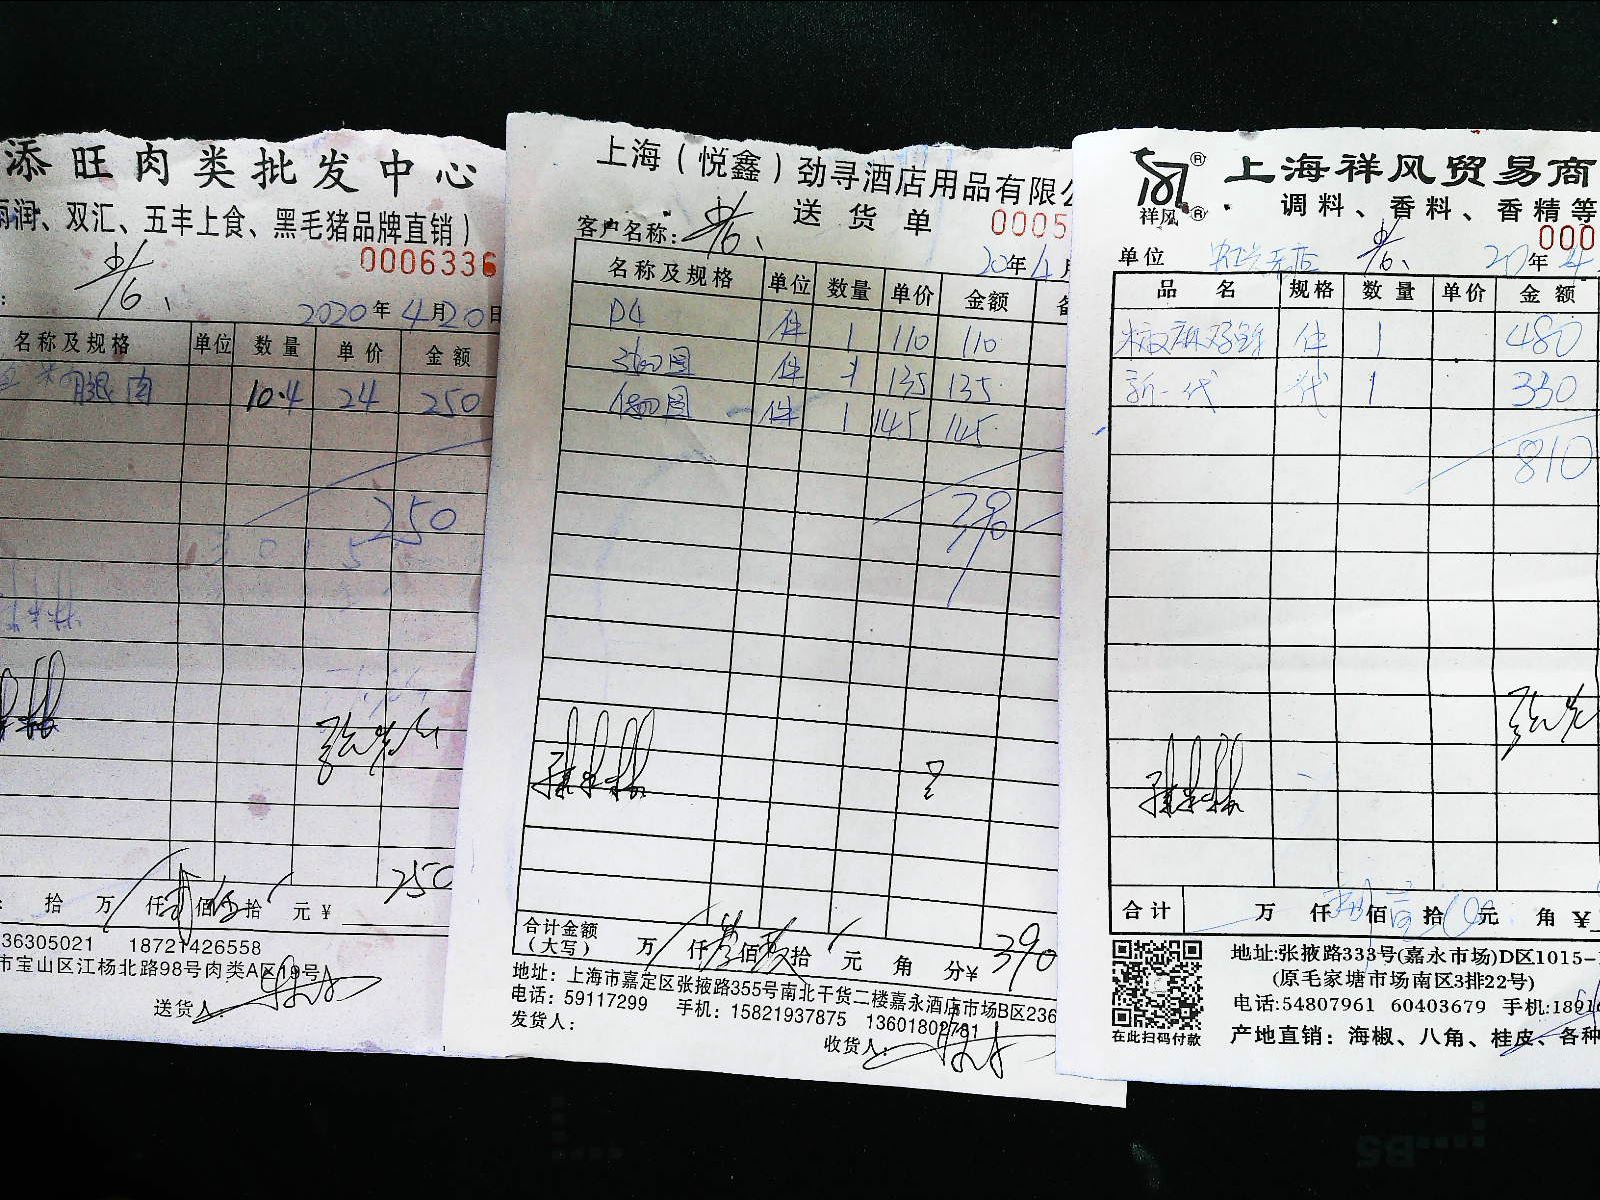 添旺肉类批发中心
雨润、双汇、五丰上食、黑毛猪品牌直销）
0006336
2020年4月20日
名称及规格 单位 数量 单价 金额
腿肉 10.4 24 250
250
拾 万 仟 佰 拾 元 ¥ 250
36305021 18721426558
市宝山区江杨北路98号肉类A区19号
送货人
上海（悦鑫）劲寻酒店用品有限公
送货单
0005
客户名称：
20年4月
名称及规格 单位 数量 单价 金额 备
D4 件 1 110 110
360圆 件 1 135 135
件 1 145 145
390
合计金额
（大写） 万 仟叁佰玖拾 元 角 分¥ 390
地址：上海市嘉定区张掖路355号南北干货二楼嘉永酒店市场B区236
电话：59117299 手机：15821937875 13601802781
发货人：
收货人：
祥风
上海祥风贸易商
调料、香料、香精等
000
单位
20年4
品名 规格 数量 单价 金额
件 1 480
新一代 1 330
810
合计 万 仟 佰 拾 元 角 ¥
地址:张掖路333号(嘉永市场)D区1015-1
(原毛家塘市场南区3排22号)
电话:54807961 60403679 手机:1891
在此扫码付款
产地直销：海椒、八角、桂皮、各种